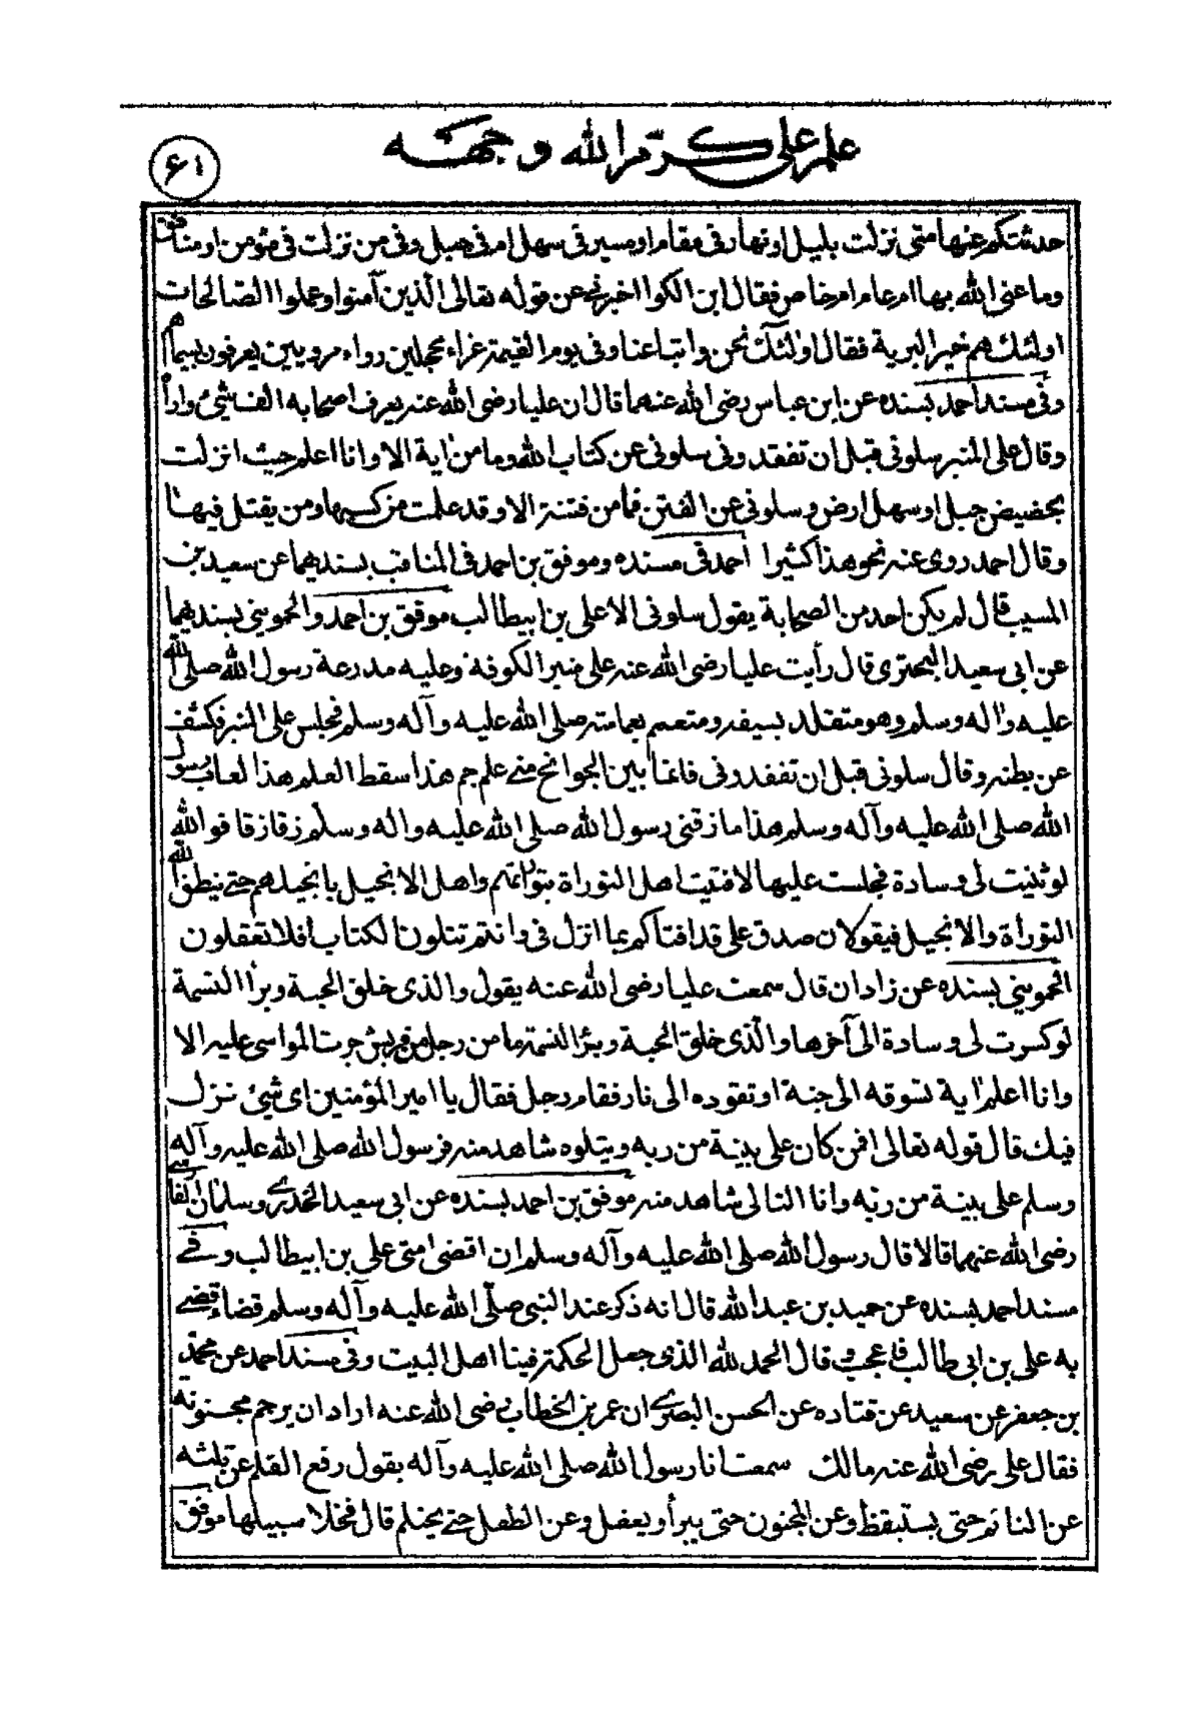 علم علي كرم الله وجهه
٦١
حدثتكم عنها متى نزلت بليل او نهار في مقام او مسير في سهل ام في جبل وفي من نزلت في مؤمن او منافق
وما عني الله بها ام عام ام خاص فقال ابن الكوا اخبرني عن قوله تعالى الذين آمنوا وعملوا الصالحات
اولئك هم خير البرية فقال اولئك نحن واتباعنا وفي يوم القيمة غراء محجلين رواء مرويين يعرفون بسيماهم
وفي مسند احمد بسنده عن ابن عباس رضي الله عنهما قال ان عليا رضي الله عنه يعرف اصحابه الف شيئ واراه
وقال على المنبر سلوني قبل ان تفقدوني سلوني عن كتاب الله وما من اية الا وانا اعلم حيث انزلت
بحضيض جبل او سهل ارض وسلوني عن الفتن فما من فتنة الا وقد علمت من كسبها ومن يقتل فيها
وقال احمد روى عنه نحو هذا كثيرا احمد في مسنده وموفق بن احمد في المناقب بسنديهما عن سعيد بن
المسيب قال لم يكن احد من الصحابة يقول سلوني الا علي بن ابيطالب موفق بن احمد والحمويني بسنديهما
عن ابي سعيد البحتري قال رأيت عليا رضي الله عنه على منبر الكوفة وعليه مدرعة رسول الله صلى الله
عليه واله وسلم وهو متقلد بسيفه ومتعمم بعمامته صلى الله عليه وآله وسلم فجلس على المنبر فكشف
عن بطنه وقال سلوني قبل ان تفقدوني فانما بين الجوانح مني علم جم هذا سقط العلم هذا لعاب رسول
الله صلى الله عليه وآله وسلم هذا ما زقني رسول الله صلى الله عليه واله وسلم زقا زقا فوالله
لو ثنيت لي وسادة فجلست عليها لافتيت اهل التوراة بتوراتهم واهل الانجيل بانجيلهم حتى ينطق الله
التوراة والانجيل فيقولان صدق علي قد افتاكم بما انزل في وانتم تتلون الكتاب افلا تعقلون
الحمويني بسنده عن زاذان قال سمعت عليا رضي الله عنه يقول والذي خلق الحبة وبرأ النسمة
لو كسرت لي وسادة الى آخرها والذي خلق الحبة وبرأ النسمة ما من رجل من قريش جرت المواسي عليه الا
وانا اعلم اية تسوقه الى جنة او تقوده الى نار فقام رجل فقال يا امير المؤمنين اي شيئ نزل
فيك قال قوله تعالى افمن كان على بينة من ربه ويتلوه شاهد منه فرسول الله صلى الله عليه وآله
وسلم على بينة من ربه وانا التالي شاهد منه موفق بن احمد بسنده عن ابي سعيد الخدري وسلمان الفارسي
رضي الله عنهما قالا قال رسول الله صلى الله عليه وآله وسلم ان اقضى امتي علي بن ابيطالب وفي
مسند احمد بسنده عن حميد بن عبد الله قال انه ذكر عند النبي صلى الله عليه وآله وسلم قضاء قضى
به علي بن ابي طالب فاعجب وقال الحمد لله الذي جعل الحكمة فينا اهل البيت وفي مسند احمد عن محمد
بن جعفر عن سعيد عن قتاده عن الحسن البصري ان عمر بن الخطاب رضي الله عنه اراد ان يرجم مجنونة
فقال علي رضي الله عنه مالك سمعت انا رسول الله صلى الله عليه وآله يقول رفع القلم عن ثلثه
عن النائم حتى يستيقظ وعن المجنون حتى يبرأ ويعقل وعن الطفل حتى يحتلم قال فخلا سبيلها موفق